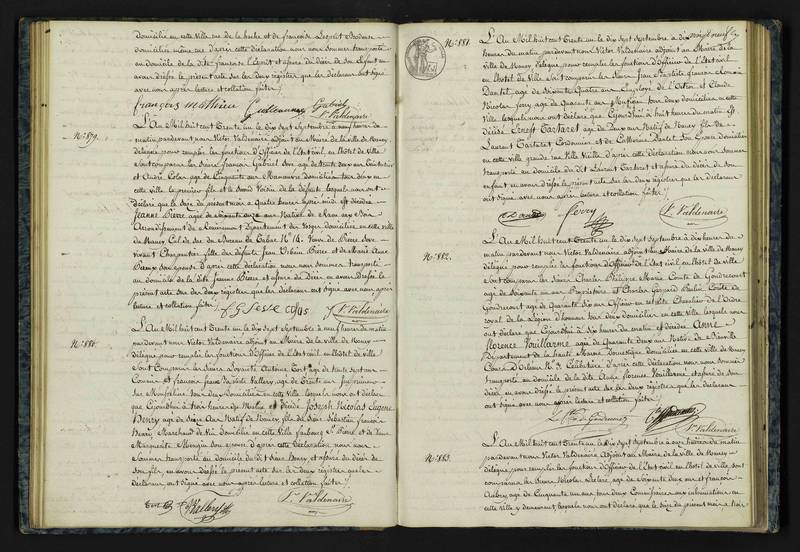 domicilié en cette Ville rue de la hache et de françoise Lesprit Brodeuse
domiciliée même rue d'après cette déclaration nous nous sommes transporté
au domicile de la dite françoise Lesprit et assuré du décès de son enfant en
avons dressé le présent acte sur les deux registres que les déclarants ont signé
avec nous après lecture et collation faite /.
françois mathieu Gabriel
Vr Valdenaire
No 879.
L'An Mil huit cent Trente un le dix sept Septembre à neuf heures du
matin pardevant nous Victor Valdenaire adjoint au Maire de la ville de Nancy
délégué pour remplir les fonctions d'Officier de l'Etat civil, en l'hôtel de Ville
sont comparus les Sieurs françois Gabriel agé de Trente deux ans
et André Colas agé de Cinquante ans Manœuvre domiciliés tous deux en
cette Ville le premier fils et le second Voisin de la défunte lesquels nous ont
déclaré que le Seize du présent mois à Quatre heures après midi est décédée
Jeanne Pierre agée de Soixante onze ans Native de
Arrondissement de Remiremont Département des Vosges domiciliée en cette ville
de Nancy No 14. Veuve de Pierre
vivant Charpentier fille des défunts Jean Urbain Pierre et de Marie Anne
son épouse d'après cette déclaration nous nous sommes transporté
au domicile de la dite Jeanne Pierre et assuré du Décès en avons Dressé le
présent acte sur les deux registres que les déclarants ont signé avec nous après
lecture et collation faite /.
Vr Valdenaire
No 880.
L'An Mil huit cent Trente un le dix sept Septembre à neuf heures du matin
pardevant nous Victor Valdenaire adjoint au Maire de la ville de Nancy
délégué pour remplir les fonctions d'Officier de l'Etat civil en l'hôtel de Ville
sont Comparus les Sieurs Antoine Cort agé de trente sept ans
et françois Jean Baptiste Vallery agé de Trente un ans
tous deux domiciliés en cette Ville lesquels nous ont déclaré
que Cejourd'hui à trois heures du Matin est Décédé Joseph Nicolas Eugène
Henry agé de Seize ans Natif de Nancy fils des Sieurs Sébastien françois
Henry Marchand de Vin Domicilié en cette Ville faubourg St Pierre et de Dame
Marguerite Mengin son épouse d'après cette déclaration nous nous
Sommes transporté au domicile du dit Sieur Henry et assuré du décès de
Son fils, en avons dressé le présent acte sur les deux registres que les
Déclarants ont signé avec nous après lecture et collation faite /.
Vallery
Vr Valdenaire
No 881.
L'An Mil huit cent Trente un le dix sept Septembre à dix
heures du matin pardevant nous Victor Valdenaire adjoint au Maire de la
ville de Nancy délégué pour remplir les fonctions d'Officier de l'Etat civil
en l'hôtel de Ville sont comparus les Sieurs Jean Baptiste
agé de Soixante Quatre ans Employé de l'Octroi et Claude
Nicolas ferry agé de Quarante six ans tous deux domiciliés en cette
Ville lesquels nous ont déclaré que Cejourd'hui à huit heures du matin est
décédé Ernest Tarbaret agé de Deux ans Natif de Nancy fils de
Laurent Tarbaret Cordonnier et de Catherine son Epouse domiciliés
en cette Ville grande rue Ville Vieille d'après cette déclaration nous nous sommes
transporté au domicile du dit Laurent Tarbaret et assuré du décès de son
enfant en avons dressé le présent acte sur les deux registres que les déclarants
ont signé avec nous après lecture et collation faite /.
ferry
Vr Valdenaire
No 882.
L'An Mil huit cent Trente un le dix sept Septembre à dix heures du
matin pardevant nous Victor Valdenaire adjoint au Maire de la ville de Nancy
délégué pour remplir les fonctions d'Officier de l'Etat civil en l'hôtel de ville
sont comparus les Sieurs Charles Philippe Marie Comte de Gondrecourt
agé de Soixante un ans Propriétaire et Charles Gaspard Paulin Comte de
Gondrecourt agé de Quarante Six ans Officier en retraite Chevalier de l'Ordre
royal de la Légion d'honneur tous deux domiciliés en cette Ville lesquels nous
ont déclaré que Cejourd'hui à Six heures du matin est décédée Anne
florence Vouillarme agée de Quarante deux ans Native de
Département de la haute Marne Domestique domiciliée en cette ville de Nancy
Cours d'Orléans No 3. Célibataire d'après cette déclaration nous nous sommes
transporté au domicile de la dite Anne florence Vouillarme et assuré de son
décès en avons dressé le présent acte sur les deux registres que les déclarants
ont signé avec nous après lecture et collation faite /.
Le Cte de Gondrecourt
Vr Valdenaire
No 883.
L'An Mil huit cent Trente un le dix sept Septembre à onze heures du matin
pardevant nous Victor Valdenaire Adjoint au Maire de la Ville de Nancy
délégué pour remplir les fonctions d'Officier de l'Etat civil en l'hôtel de Ville sont
comparus les Sieurs Nicolas agé de Soixante deux ans et françois
Aubry agé de Cinquante un ans tous deux Commissionnaires en
cette Ville y demeurant lesquels nous ont déclaré que le Seize du présent mois à huit